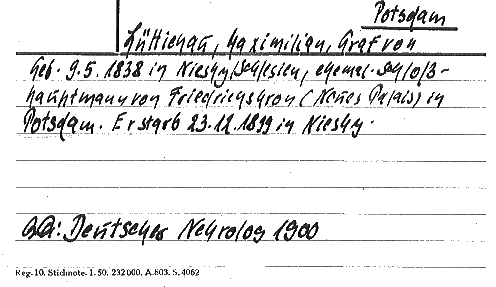 Potsdam
Lüttichau, Maximilian, Graf von
Geb. 9.5. 1838 in Niesky, Schlesien, ehemal. Schloß-
hauptmann von Friedrichskron (Neues Palais) in
Potsdam. Er starb 23.12.1899 in Niesky.
Qu: Deutscher Nekrolog 1900
Reg. 10. Stichnote. 1. 50. 232 000. A. 803. S. 4062